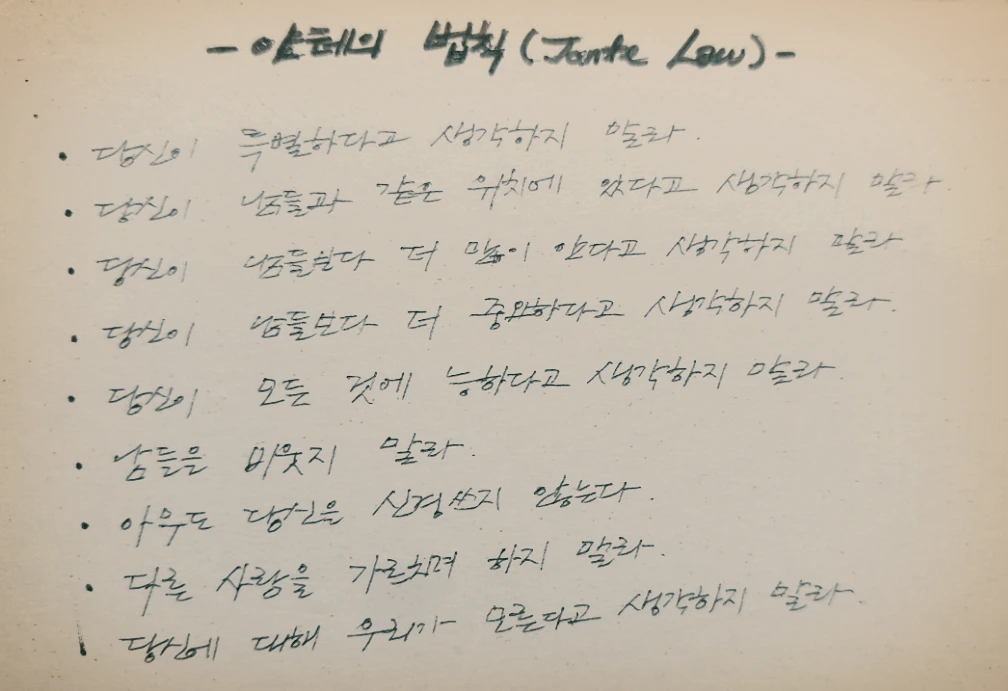 - 얀테의 법칙 (Jante Law) -
• 당신이 특별하다고 생각하지 말라.
• 당신이 남들과 같은 위치에 있다고 생각하지 말라.
• 당신이 남들보다 더 많이 안다고 생각하지 말라
• 당신이 남들보다 더 중요하다고 생각하지 말라.
• 당신이 모든 것에 능하다고 생각하지 말라.
• 남들을 비웃지 말라.
• 아무도 당신을 신경쓰지 않는다.
• 다른 사람을 가르치려 하지 말라.
• 당신에 대해 우리가 모른다고 생각하지 말라.